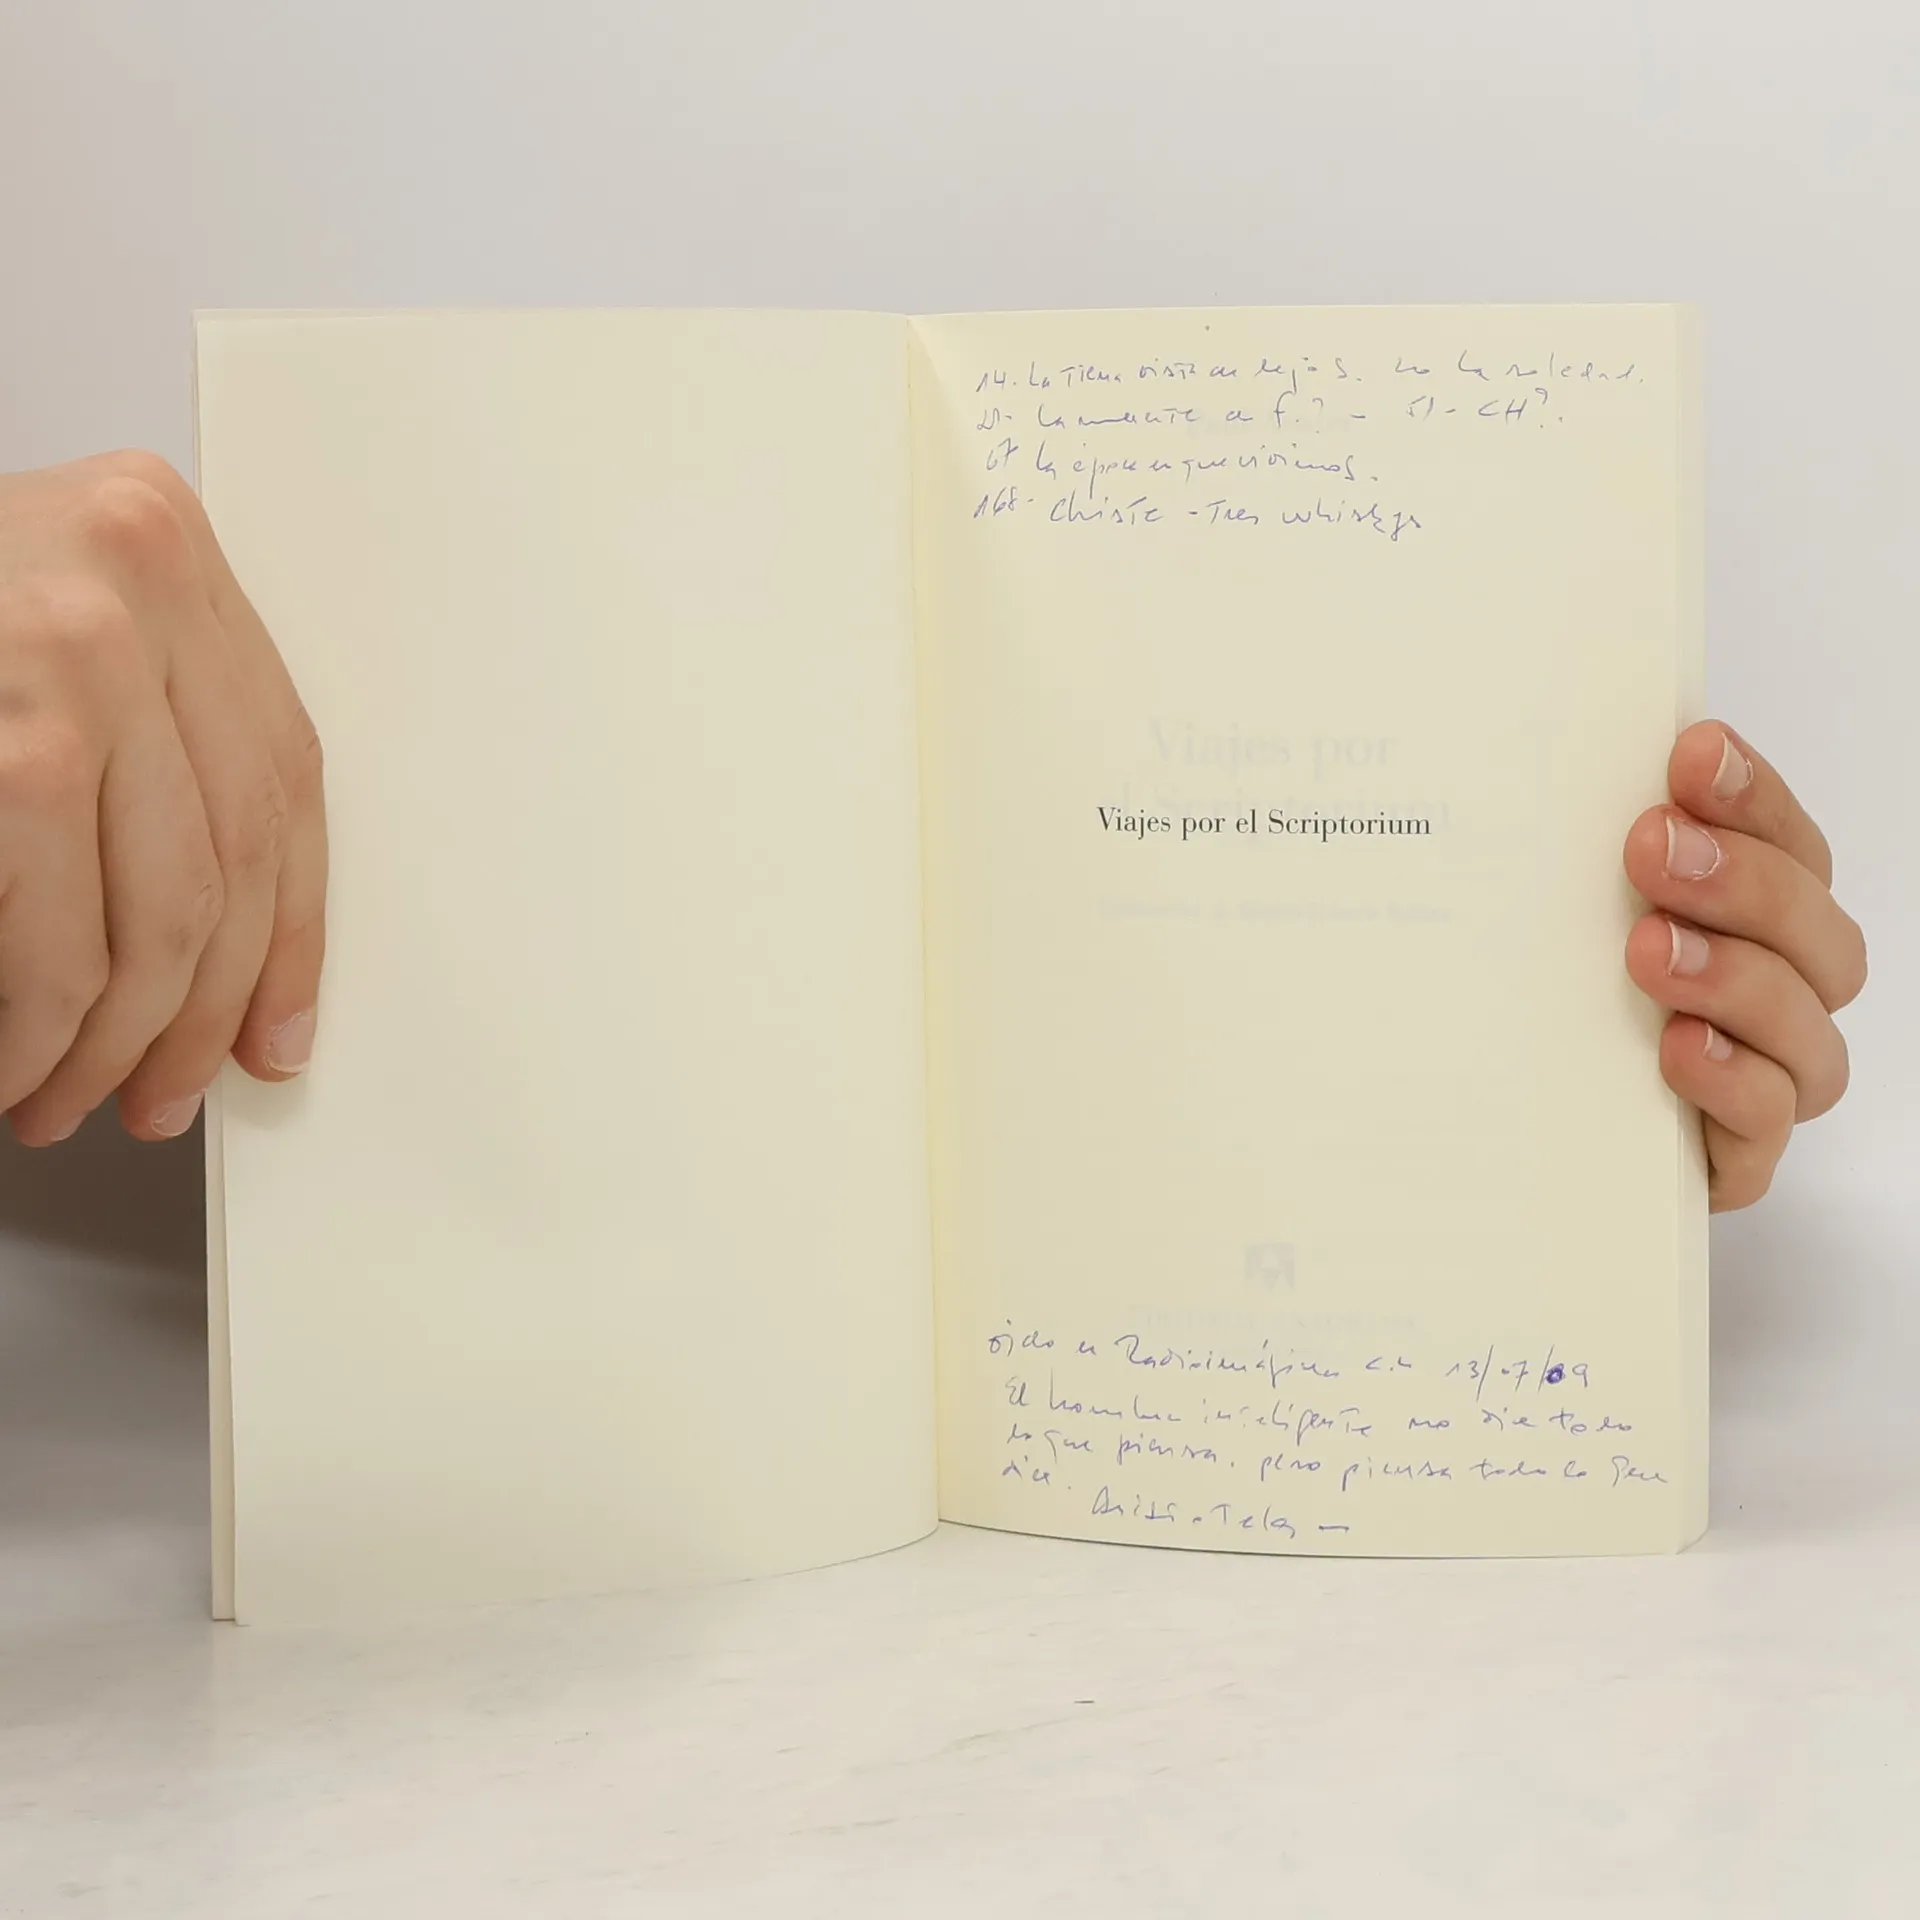 14. La Tierra vista de lejos. la soledad.
La muerte de f.? - CH?.
67 la época en que vivimos.
168- Chiste - Tres whiskys
Viajes por
el Scriptorium
Viajes por el Scriptorium
oido en 13/07/09
El hombre inteligente no dice todo
lo que piensa, pero piensa todo lo que
dice.
Aristóteles -